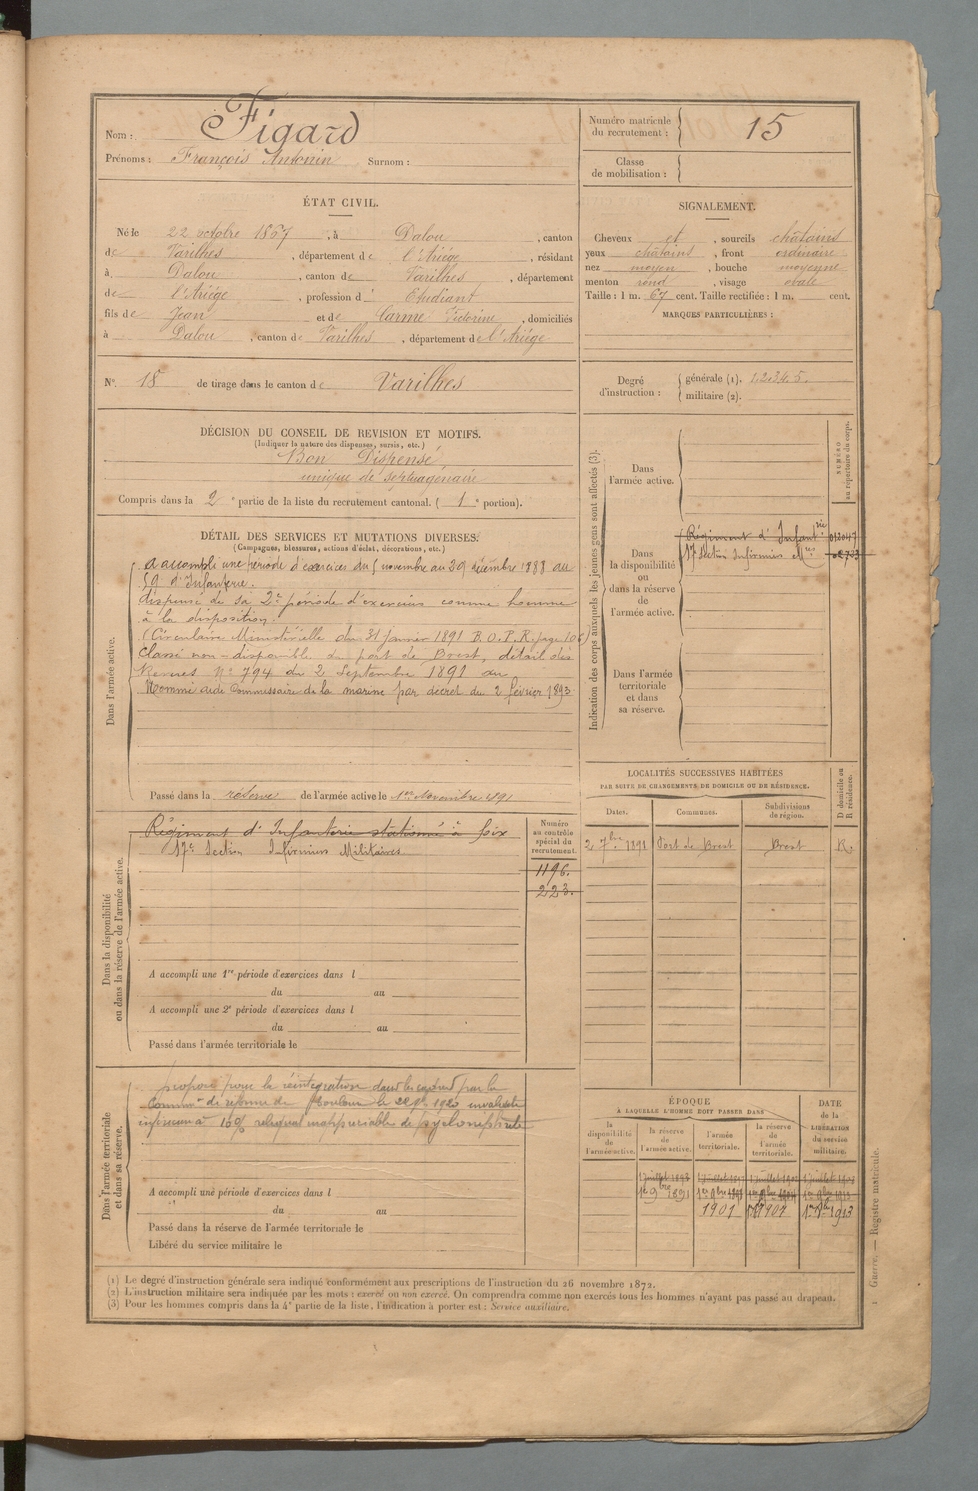 Nom : Figard
Prénoms : François Antonin Surnom :
Numéro matricule du recrutement : 15
Classe de mobilisation :
ÉTAT CIVIL.
Né le 22 octobre 1867, à Dalou, canton
de Varilhes, département de l'Ariège, résidant
à Dalou, canton de Varilhes, département
de l'Ariège, profession d' Etudiant
fils de Jean et de Carme Victorine, domiciliés
à Dalou, canton de Varilhes, département de l'Ariège
SIGNALEMENT.
Cheveux et, sourcils châtains
yeux châtains, front ordinaire
nez moyen, bouche moyenne
menton rond, visage ovale
Taille : 1 m. 67 cent. Taille rectifiée : 1 m. cent.
MARQUES PARTICULIÈRES :
N° 18 de tirage dans le canton de Varilhes
Degré d'instruction : générale (1). 1.2.3.4.5.
militaire (2).
DÉCISION DU CONSEIL DE REVISION ET MOTIFS.
(Indiquer la nature des dispenses, sursis, etc.)
Bon Dispensé
unique de septuagénaire
Compris dans la 2e partie de la liste du recrutement cantonal. (1e portion).
DÉTAIL DES SERVICES ET MUTATIONS DIVERSES.
(Campagnes, blessures, actions d'éclat, décorations, etc.)
Dans l'armée active.
A accompli une période d'exercices du 5 novembre au 29 décembre 1888 au
59 d'Infanterie.
dispensé de sa 2e période d'exercices comme homme
à la disposition.
(Circulaire Ministérielle du 31 Janvier 1891 B.O.P.R. page 106)
Classé non-disponible du port de Brest, détail des
Revues N° 794 du 2 Septembre 1891 au
Nommé aide Commissaire de la marine par décret du 2 février 1893
Passé dans la réserve de l'armée active le 1er Novembre 1891
Indication des corps auxquels les jeunes gens sont affectés (3).
NUMÉRO au répertoire du corps.
Dans l'armée active.
Dans la disponibilité ou dans la réserve de l'armée active.
Régiment d'Infantrie
17e Section Infirmiers Mres
Dans l'armée territoriale et dans sa réserve.
LOCALITÉS SUCCESSIVES HABITÉES
PAR SUITE DE CHANGEMENTS DE DOMICILE OU DE RÉSIDENCE.
D domicile ou R résidence.
Dates. Communes. Subdivisions de région.
2 7bre 1891 Port de Brest Brest R.
Dans la disponibilité ou dans la réserve de l'armée active.
Régiment d'Infanterie stationné à Foix
17e Section Infirmiers Militaires
Numéro au contrôle spécial du recrutement.
1196.
223.
A accompli une 1re période d'exercices dans l
du au
A accompli une 2e période d'exercices dans l
du au
Passé dans l'armée territoriale le
Dans l'armée territoriale et dans sa réserve.
proposé pour la réintégration dans les cadres par la
Common de réforme de Toulouse le 1920 invalidité
inférieure à 10% reliquat inappréciable de pyélonéphrite
A accompli une période d'exercices dans l
du au
Passé dans la réserve de l'armée territoriale le
Libéré du service militaire le
ÉPOQUE
À LAQUELLE L'HOMME DOIT PASSER DANS
la disponibilité de l'armée active.
la réserve de l'armée active.
l'armée territoriale.
la réserve de l'armée territoriale.
DATE de la LIBÉRATION du service militaire.
1er 9bre 1891 1er 9bre 1898
1901 1907 1913
(1) Le degré d'instruction générale sera indiqué conformément aux prescriptions de l'instruction du 26 novembre 1872.
(2) L'instruction militaire sera indiquée par les mots : exercé ou non exercé. On comprendra comme non exercés tous les hommes n'ayant pas passé au drapeau.
(3) Pour les hommes compris dans la 4e partie de la liste, l'indication à porter est : Service auxiliaire.
Registre matricule.